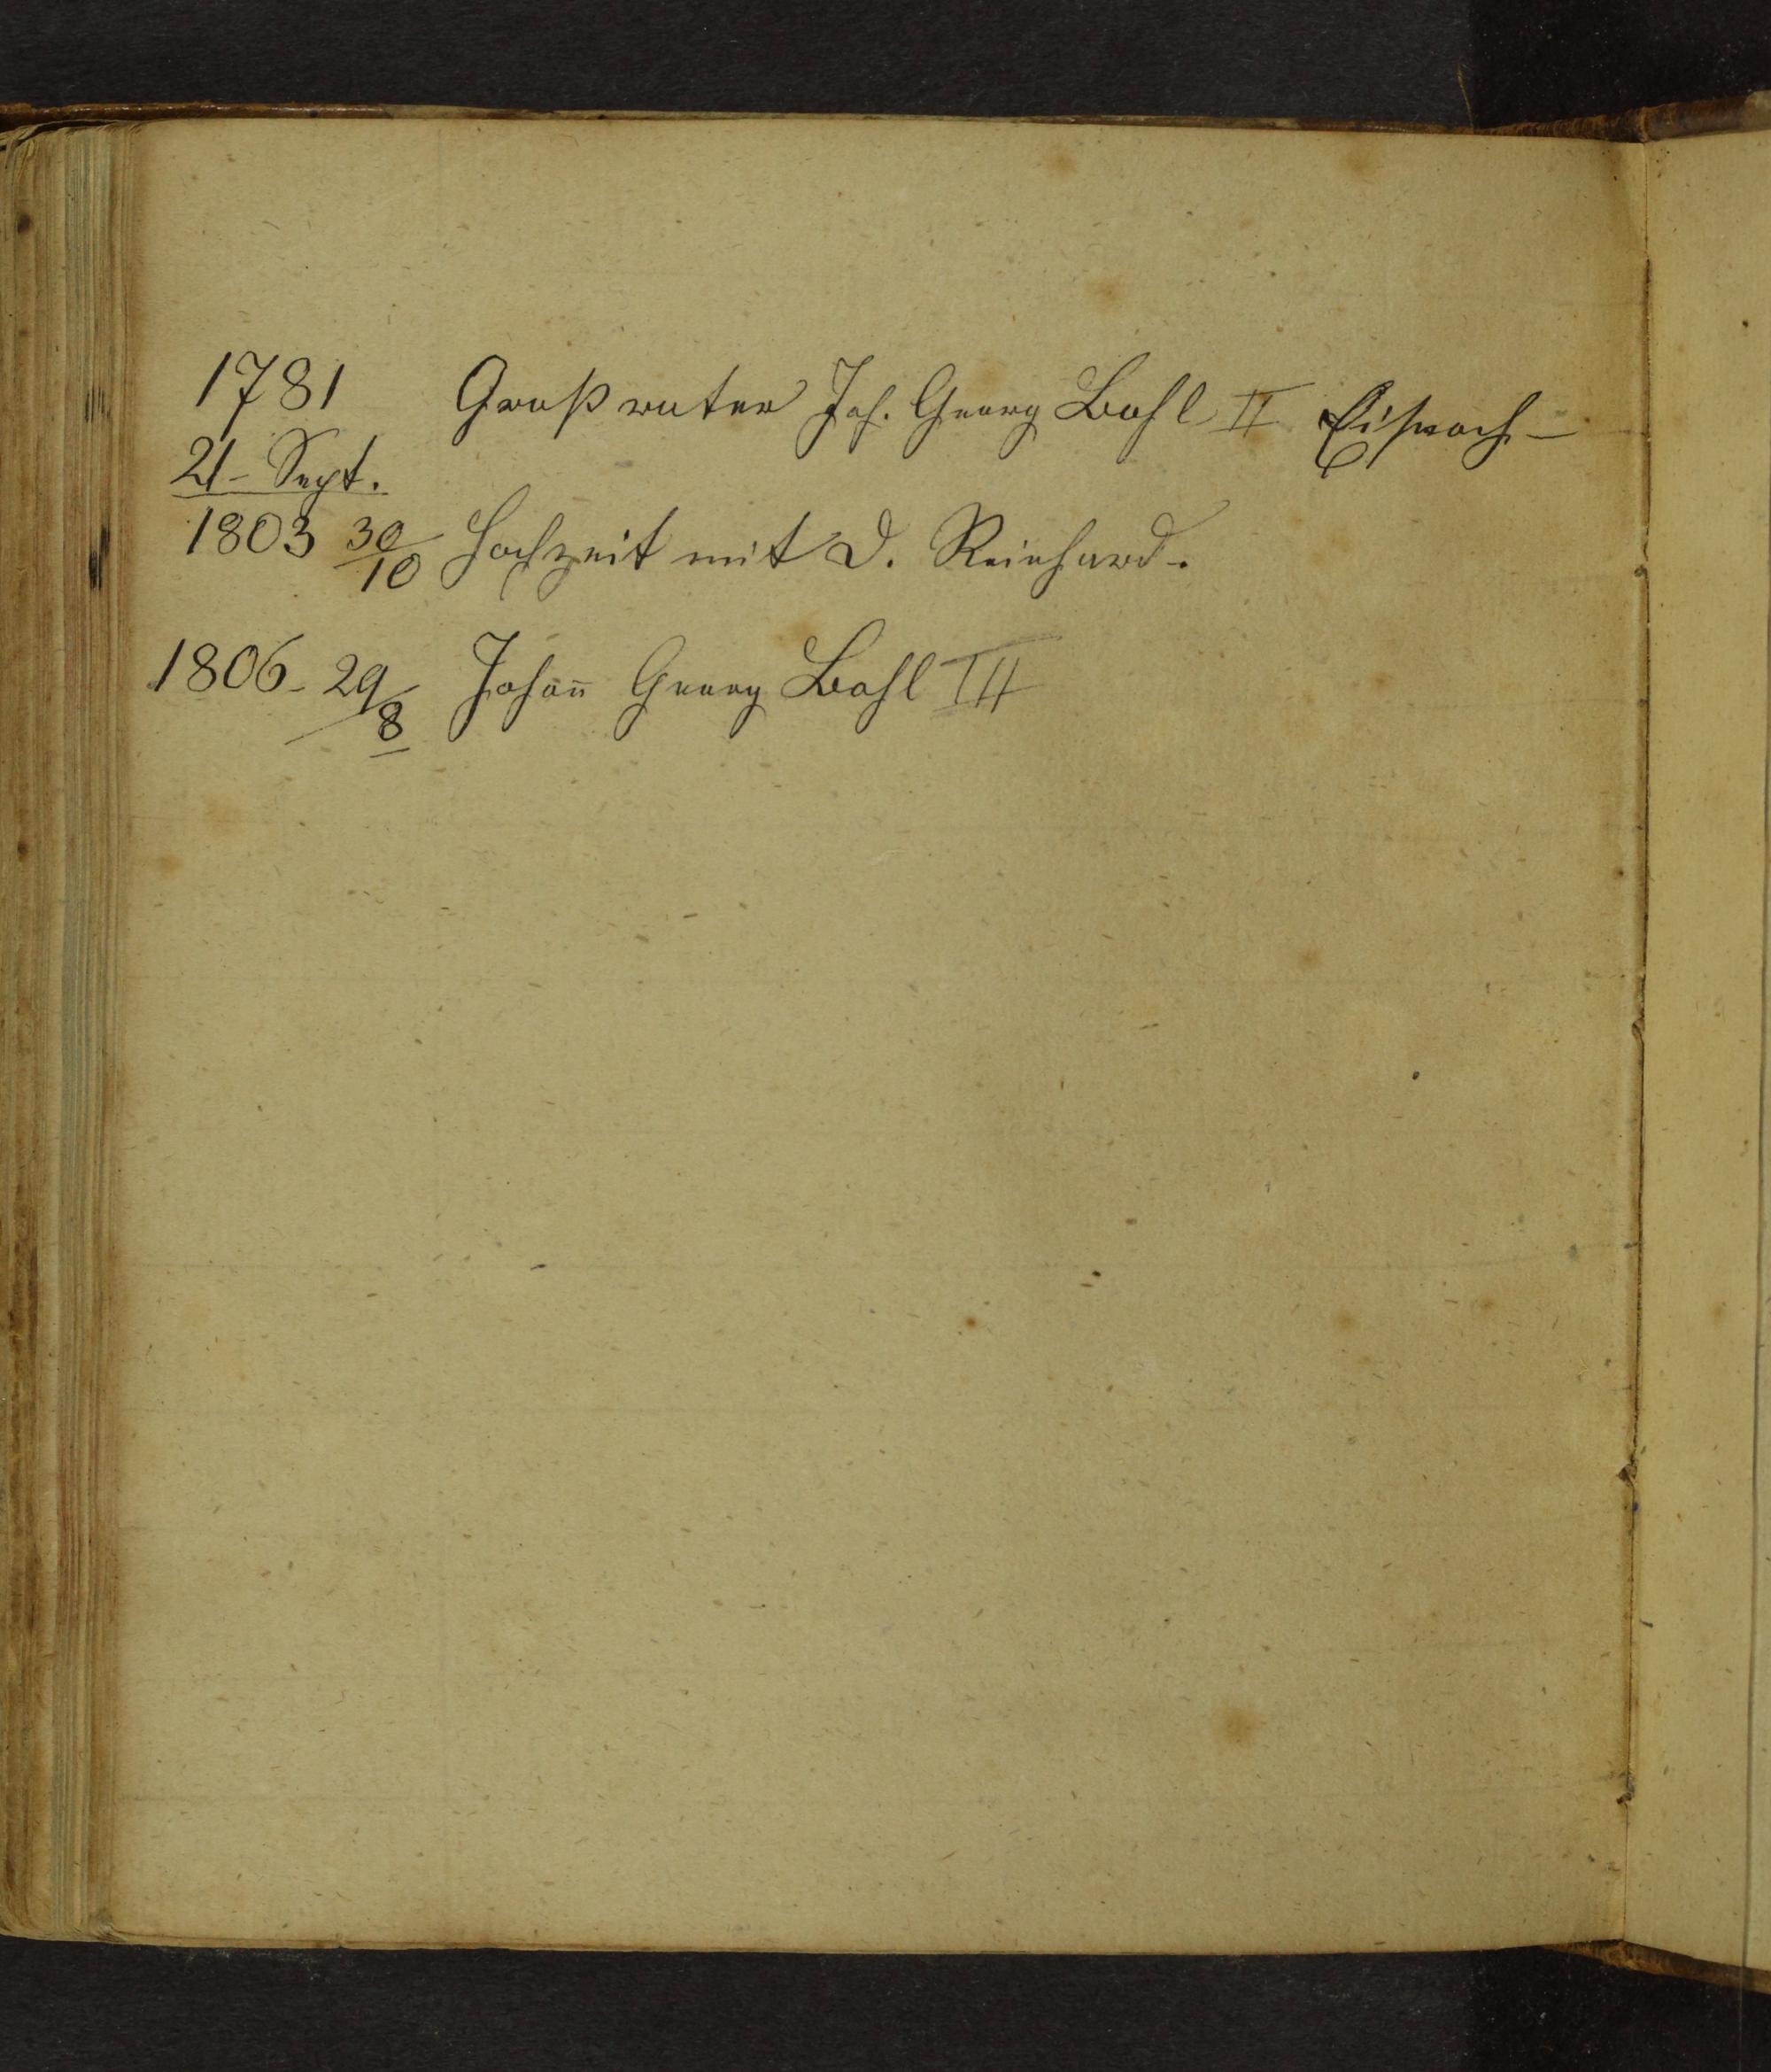 1781 Großvater Joh. Georg Bohl II Eisnach -
21 - Sept.
1803 30/10 Hochzeit mit D. Reinhard.
1806 - 29/8 Johan̅ Georg Bohl III